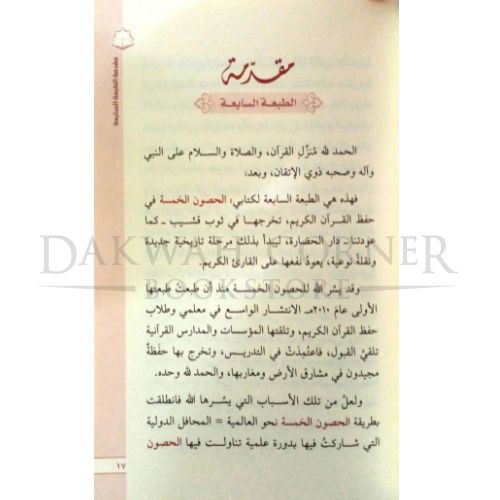 مقدمة الطبعة السابعة
مقدّمة
الطبعة السابعة
الحمد لله مُنزّلِ القرآن، والصلاة والسلام على النبي
وآله وصحبه ذوي الإتقان، وبعد:
فهذه هي الطبعة السابعة لكتابي: الحصون الخمسة في
حفظ القرآن الكريم، تخرجها في ثوب قشيب ـ كما
عودتنا ـ دار الحضارة، ليبدأ بذلك مرحلة تاريخية جديدة
ونقلة نوعية، يعودُ نفعها على القارئ الكريم.
وقد يسّر الله للحصون الخمسة منذ أن طبعتْ طبعتها
الأولى عام ٢٠١٠مـ الانتشار الواسع في معلمي وطلاب
حفظ القرآن الكريم، وتلقتها المؤسسات والمدارس القرآنية
تلقيَ القبول، فاعتُمِدَتْ في التدريس، وتخرج بها حفَظةٌ
مجيدون في مشارق الأرض ومغاربها، والحمد لله وحده.
ولعلَّ من تلك الأسباب التي يسّرها الله فانطلقت
بطريقة الحصون الخمسة نحو العالمية = المحافل الدولية
التي شاركتُ فيها بدورة علمية تناولت فيها الحصون
١٧
DAKWAH CORNER
BOOKSTORE